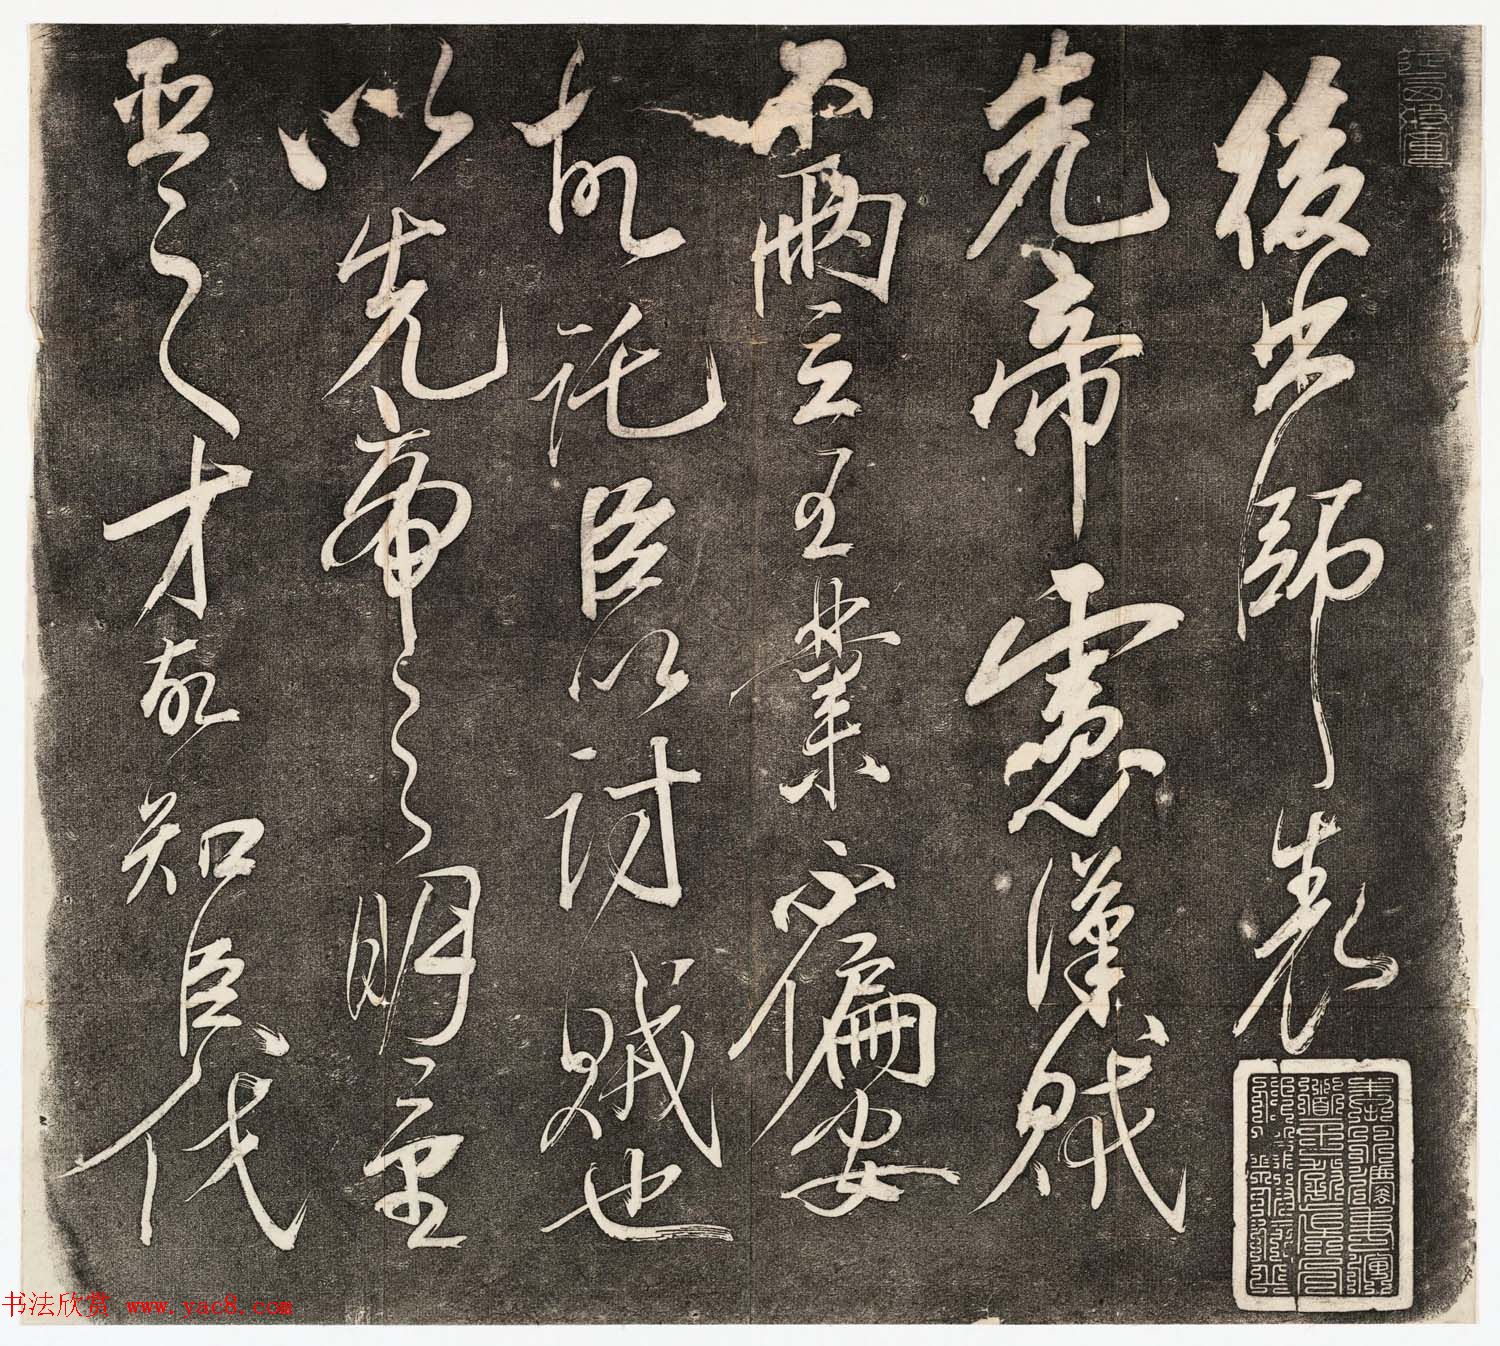 後出師表
先帝慮漢賊
不兩立王業不偏安
故託臣以討賊也
以先帝之明量
臣之才故知臣伐
书法欣赏 www.yac8.com